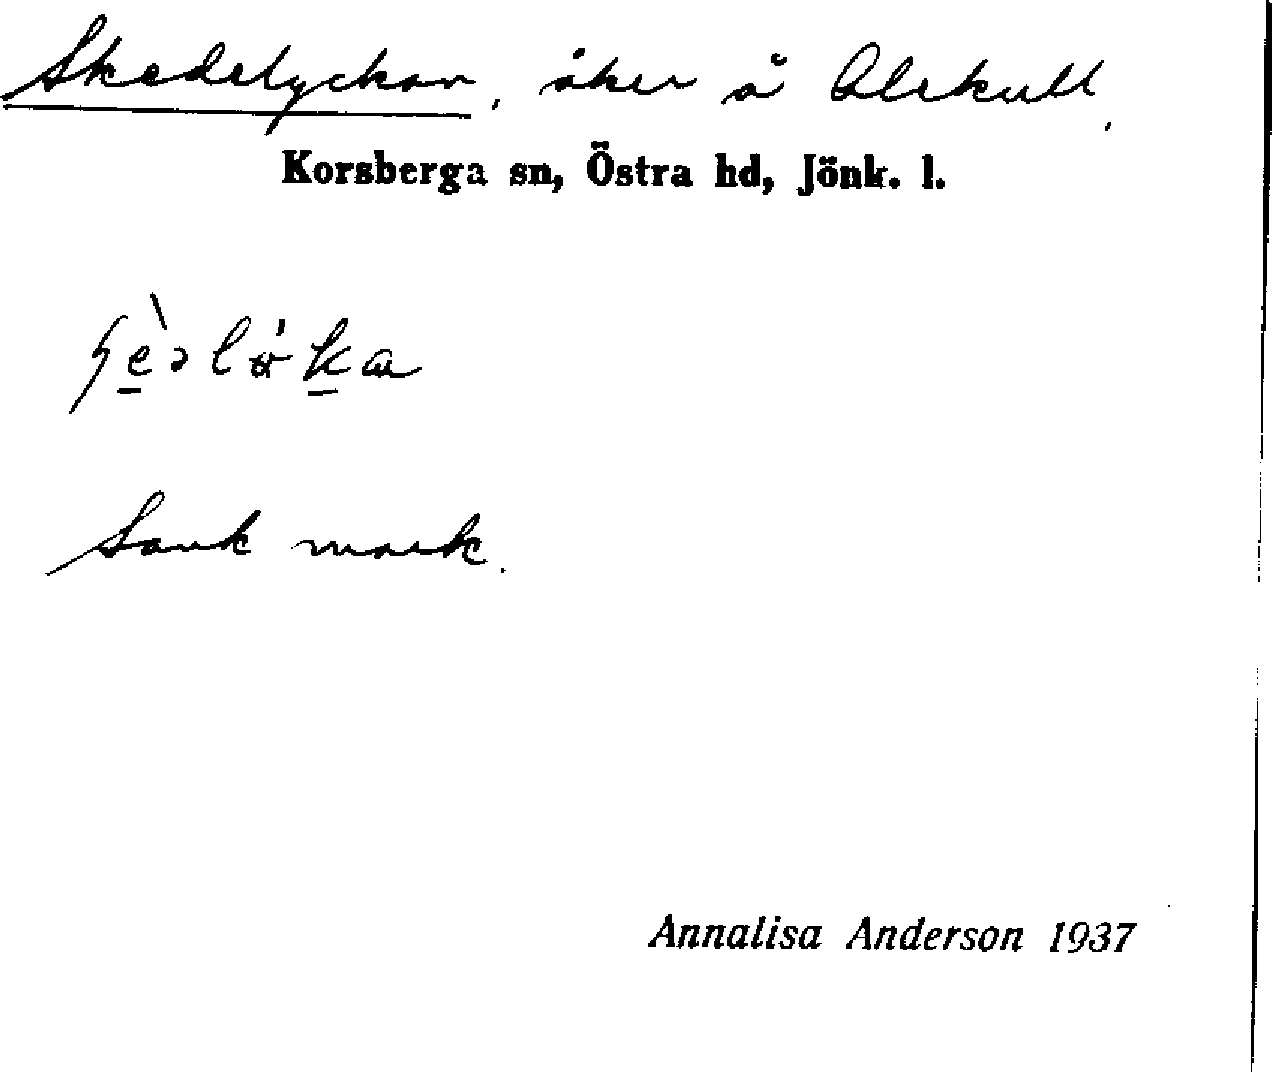 Skedelyckan, åker å Alekull,
Korsberga sn, Östra hd, Jönk. l.
Sank mark.
Annalisa Anderson 1937